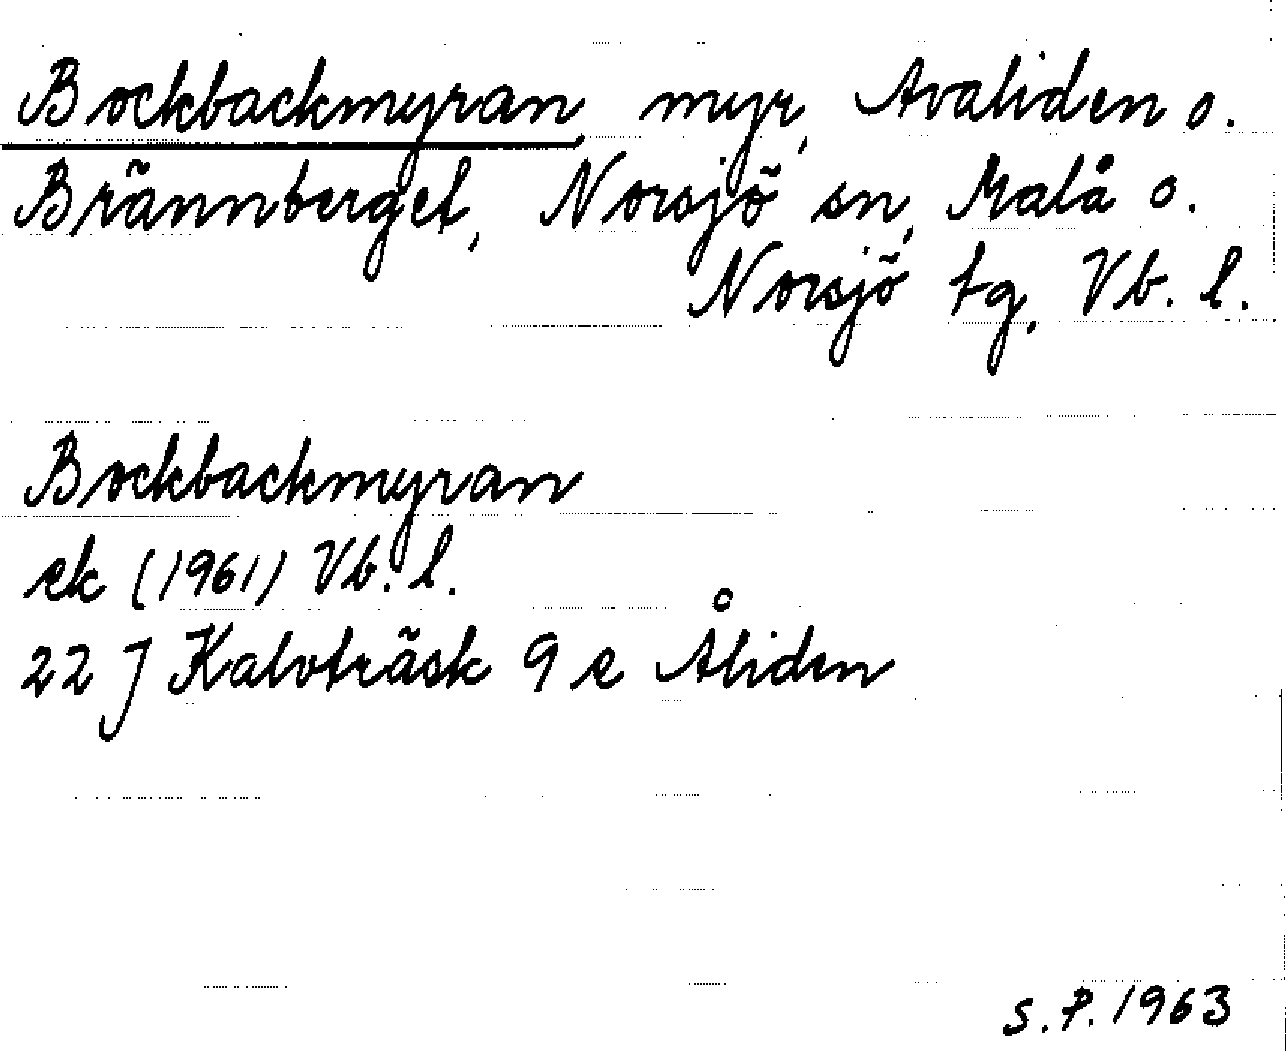 Bockbackmyran, myr, Avaliden o.
Brännberget, Norsjö sn, Malå o.
Norsjö tg, Vb. l.
Bockbackmyran
ek (1961) Vb. l.
22 J Kalvträsk 9 e Åliden
S.P. 1963